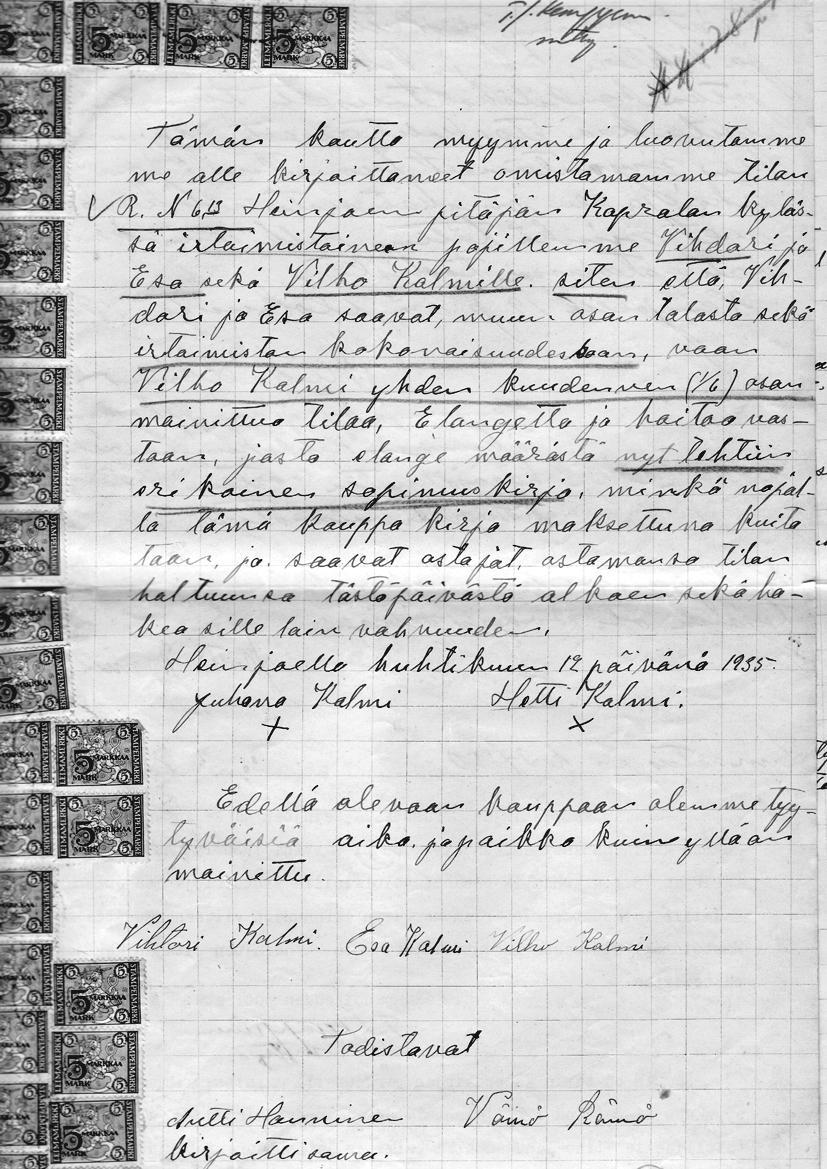 Tämän kautta myymme ja luovutamme
me alle kirjoittaneet omistamamme tilan
R. N 6,13 Heinjoen pitäjän Kapralan kyläs-
sä irtaimistoineen pojillemme Vihdori ja
Esa sekä Vilho Kalmille. siten että, Vih-
dori ja Esa saavat, muun osan talosta sekä
irtaimiston kokonaisuudessaan, vaan
Vilho Kalmi yhden kuudennen (1/6) osan
mainittua tilaa, Elangetta ja hoitoa vas-
taan, josta elange määrästä nyt tehtiin
eri koinen sopimuskirja, minkä nojal-
la tämä kauppa kirja maksettuna kuita
taan, ja saavat ostajat, ostamansa tilan
haltuunsa tästäpäivästä alkaen sekä ha-
kea sille lain vahvuuden.
Heinjoella huhtikuun 12 päivänä 1935.
Juhana Kalmi Hetti Kalmi.
+ ×
Edellä olevaan kauppaan olemme tyy-
tyväisiä aika. ja paikka kuin yllään
mainittu.
Vihtori Kalmi. Esa Kalmi Vilho Kalmi
Todistavat
Antti Hanninen Väinö Rämö
kirjoitti saman.
5 MARKKAA
MARK
STAMPELMARKE